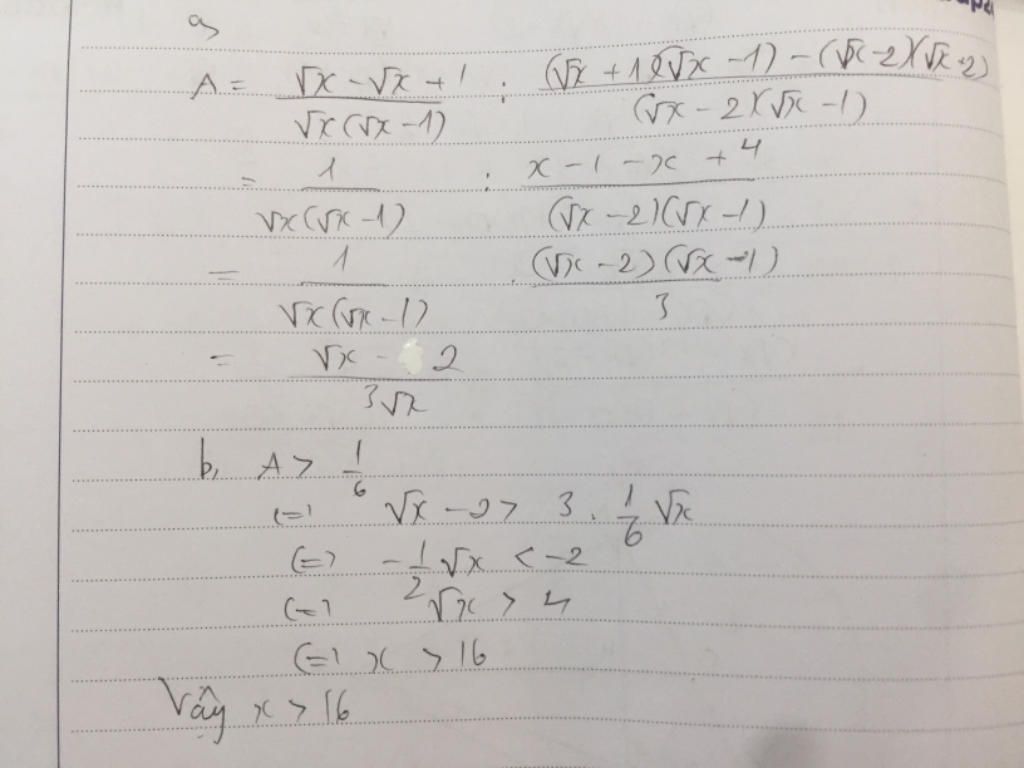 a,
A = (√x - √x + 1)/(√x(√x - 1)) : ((√x + 1)(√x - 1) - (√x - 2)(√x + 2))/((√x - 2)(√x - 1))
= 1/(√x(√x - 1)) : (x - 1 - x + 4)/((√x - 2)(√x - 1))
= 1/(√x(√x - 1)) . ((√x - 2)(√x - 1))/3
= (√x - 2)/(3√x)
b, A > 1/6
(=) √x - 2 > 3 . 1/6 √x
(=) -1/2 √x < -2
(=) √x > 4
(=) x > 16
Vậy x > 16